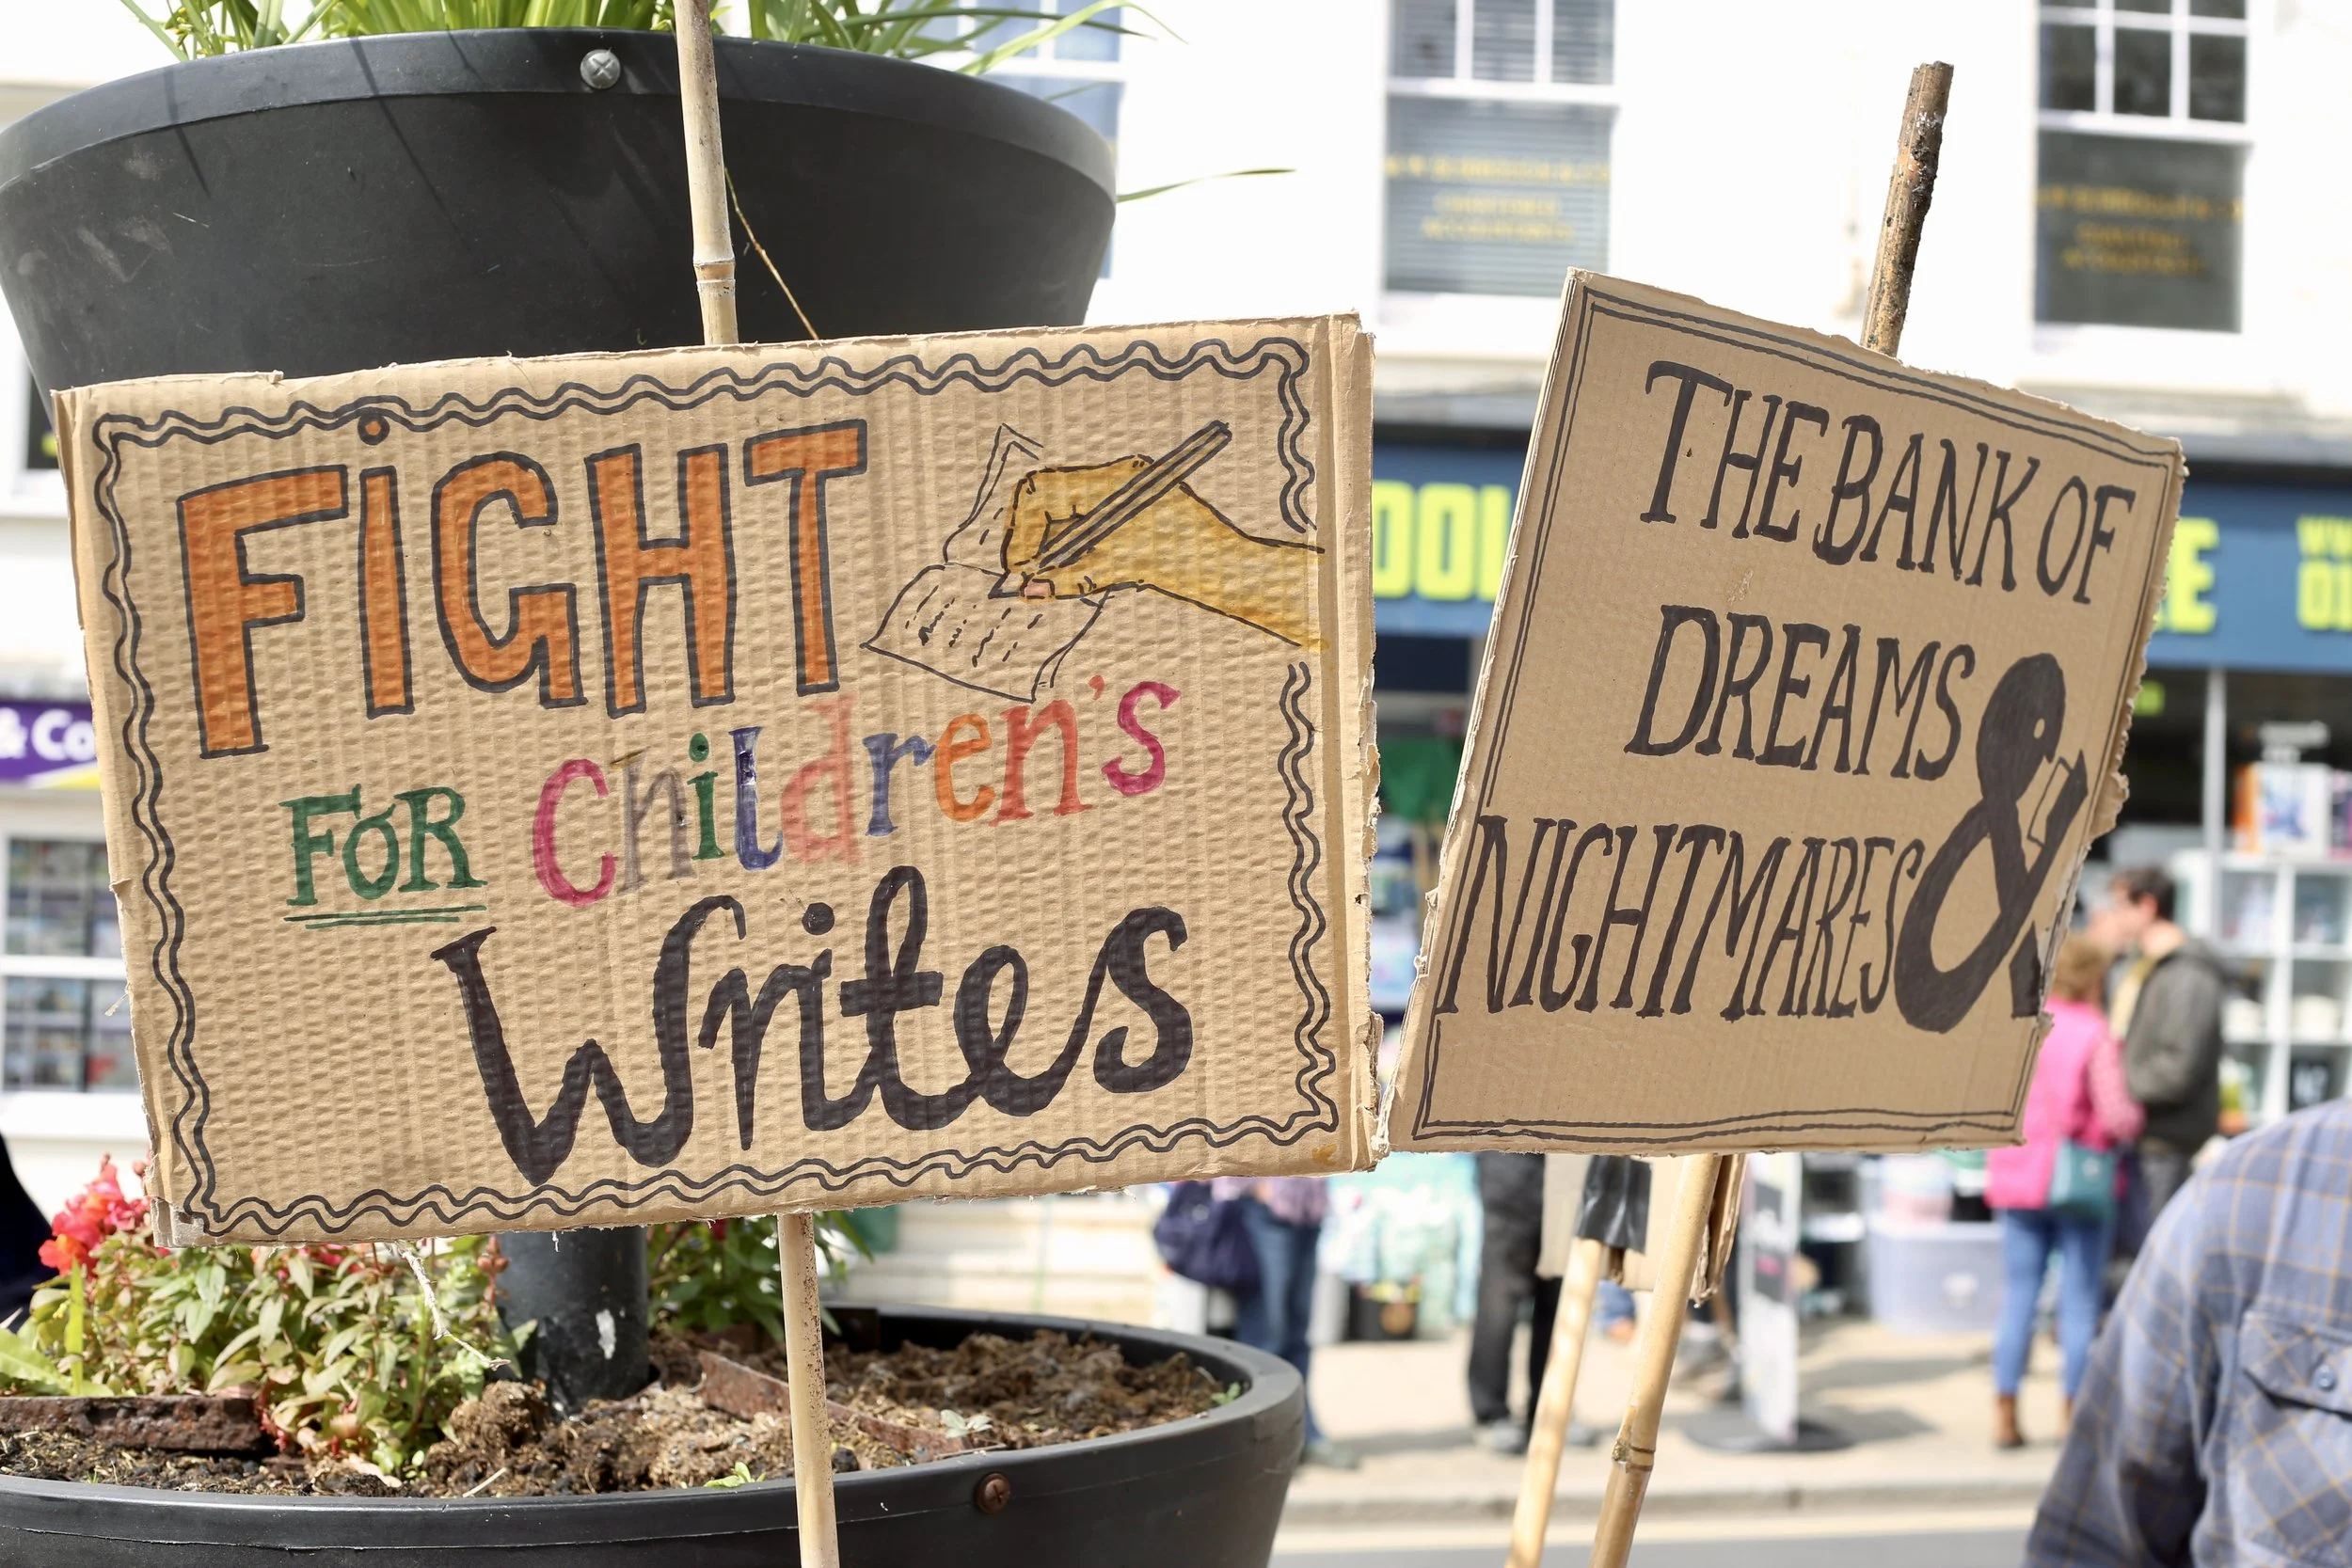 FiGHT
FOR Children's
Writes
THE BANK OF
DREAMS
&
NIGHTMARES
& Co